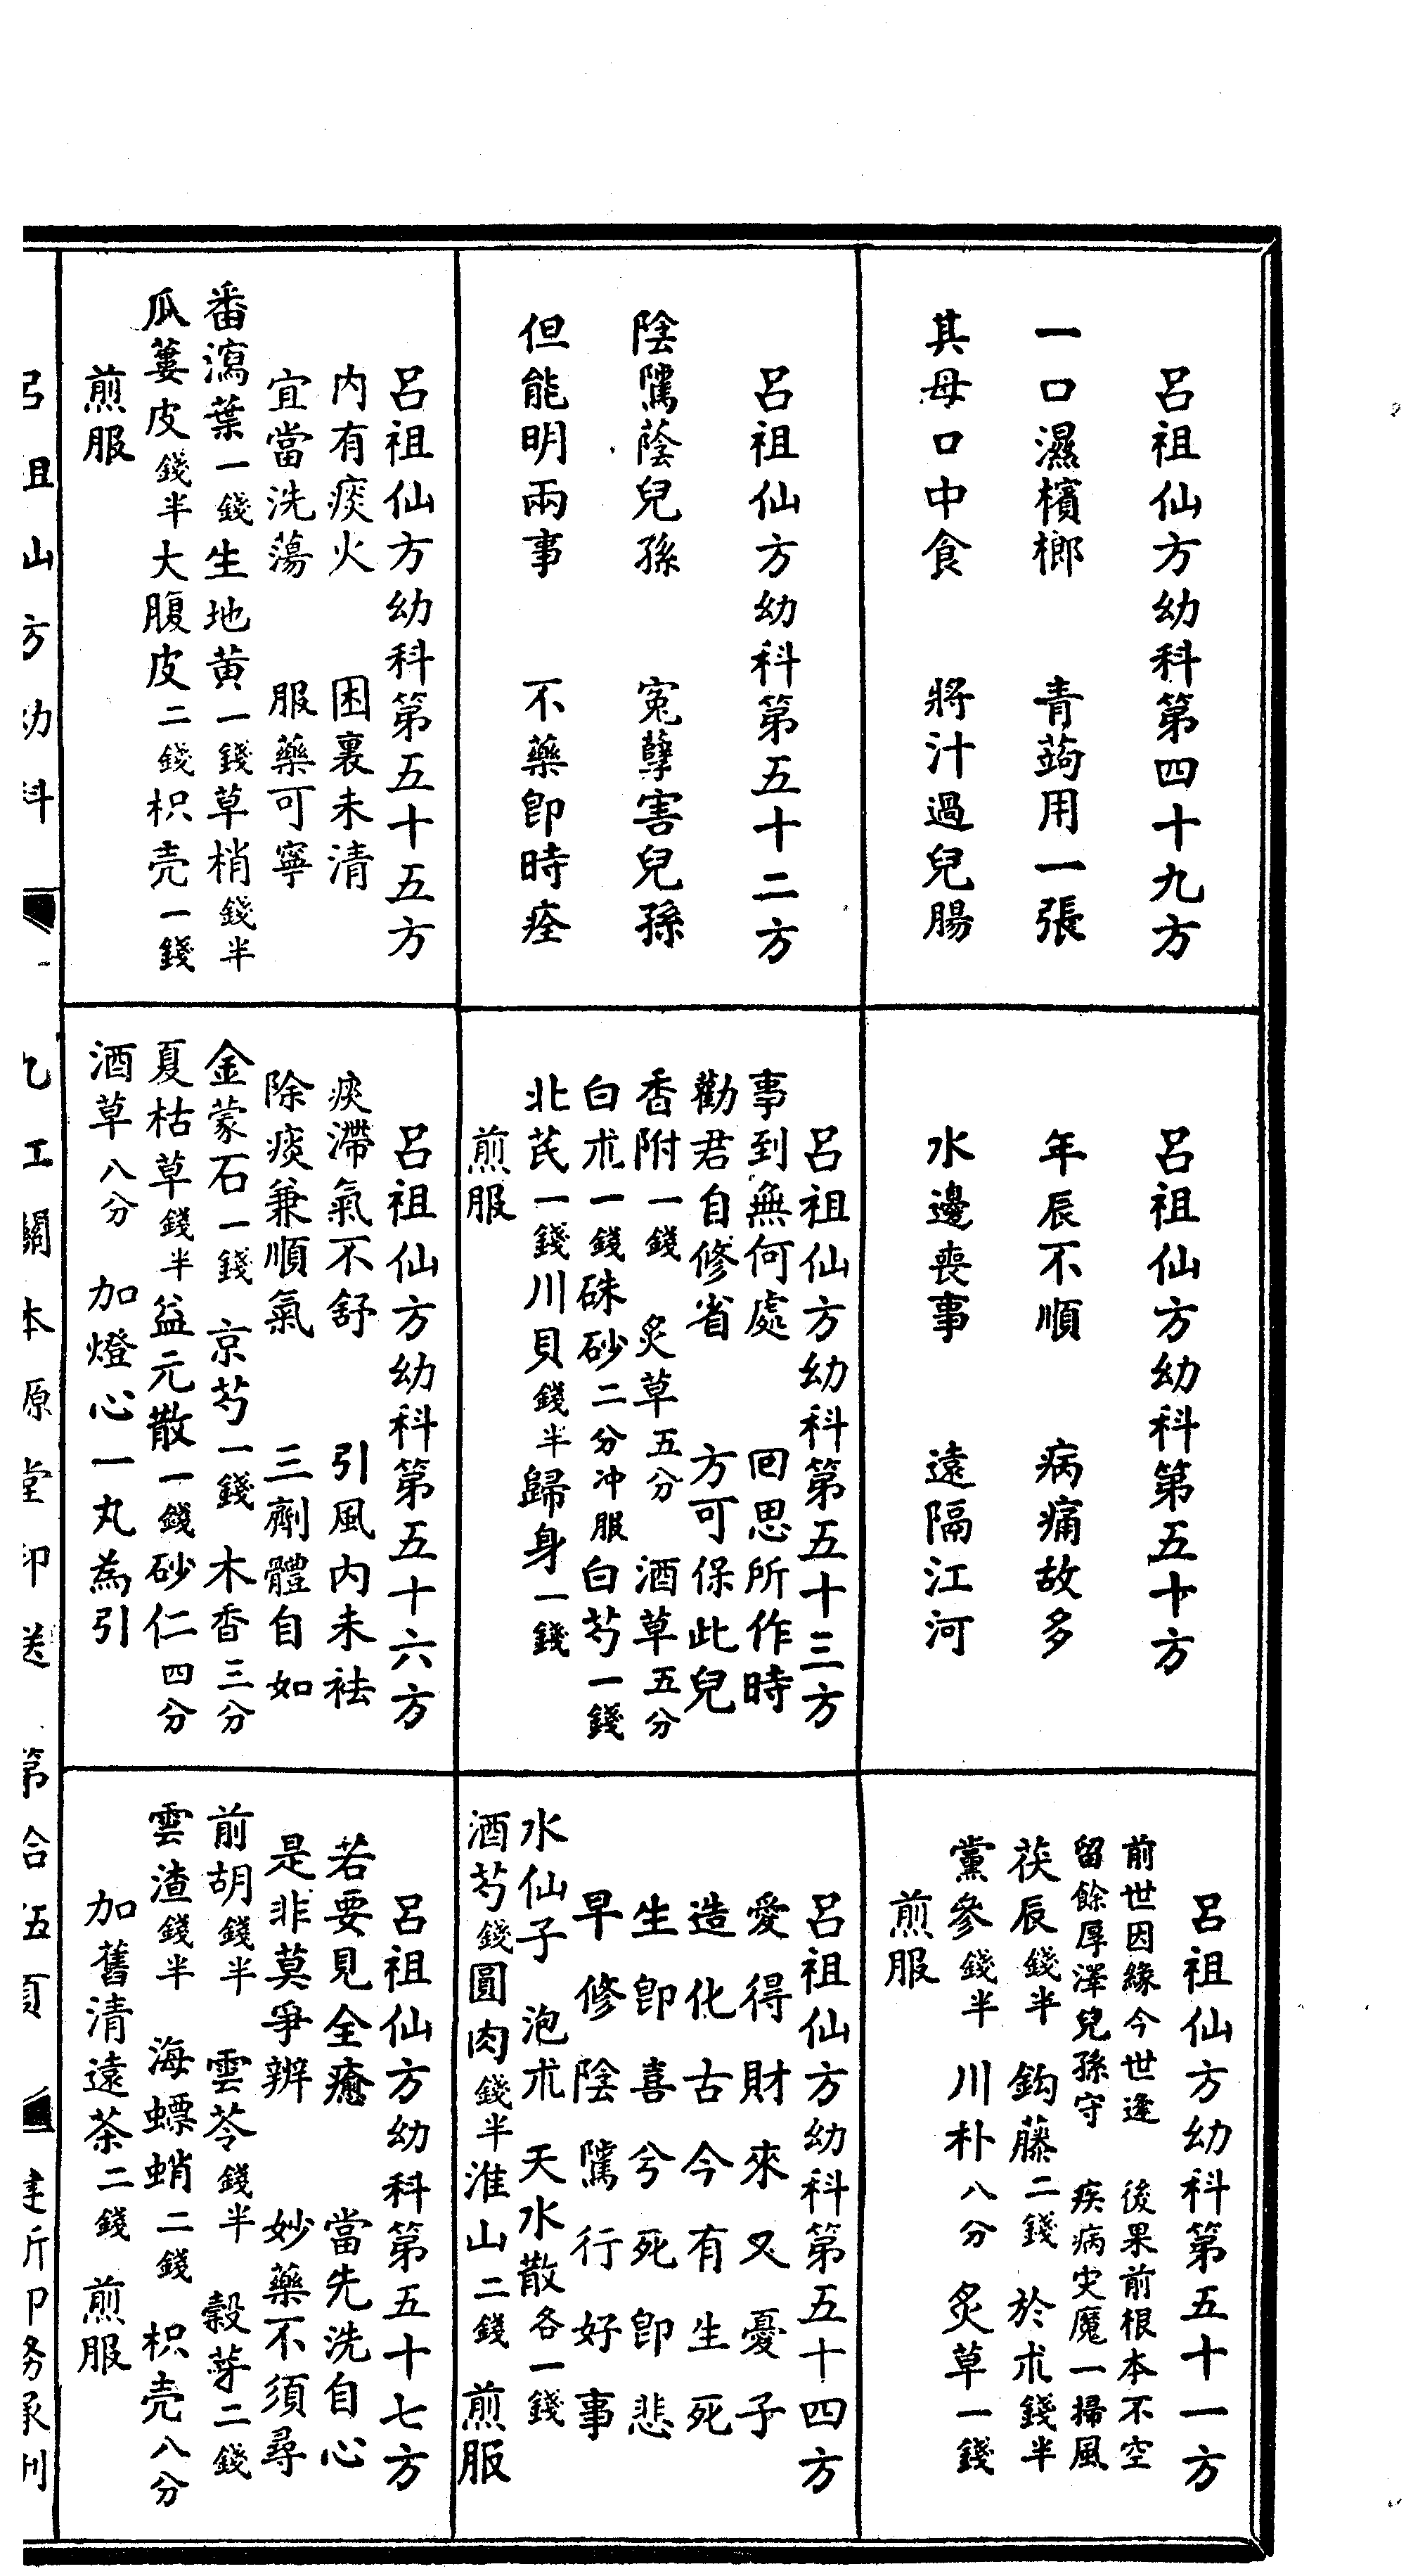 呂祖仙方幼科第四十九方
一口濕檳榔　青蒟用一張
其母口中食　將汁過兒腸
呂祖仙方幼科第五十方
年辰不順　病痛故多
水邊喪事　遠隔江河
呂祖仙方幼科第五十一方
前世因緣今世逢　後果前根本不空
留餘厚澤兒孫守　疾病灾魔一掃風
茯辰錢半　鈎藤二錢　於朮錢半
黨參錢半　川朴八分　炙草一錢
煎服
呂祖仙方幼科第五十二方
陰騭蔭兒孫　寃孽害兒孫
但能明兩事　不藥卽時痊
呂祖仙方幼科第五十三方
事到無何處　回思所作時
勸君自修省　方可保此兒
香附一錢　炙草五分　酒草五分
白朮一錢硃砂二分冲服白芍一錢
北芪一錢川貝錢半歸身一錢
煎服
呂祖仙方幼科第五十四方
愛得財來又憂子
造化古今有生死
生卽喜兮死卽悲
早修陰騭行好事
水仙子　泡朮　天水散各一錢
酒芍錢圓肉錢半淮山二錢　煎服
呂祖仙方幼科第五十五方
內有痰火　困裏未清
宜當洗蕩　服藥可寧
番瀉葉一錢生地黃一錢草梢錢半
瓜蔞皮錢半大腹皮二錢枳壳一錢
煎服
呂祖仙方幼科第五十六方
痰滯氣不舒　引風內未袪
除痰兼順氣　三劑體自如
金蒙石一錢　京芍一錢　木香三分
夏枯草錢半益元散一錢砂仁四分
酒草八分　加燈心一丸為引
呂祖仙方幼科第五十七方
若要見全癒　當先洗自心
是非莫爭辨　妙藥不須尋
前胡錢半　雲苓錢半　穀芽二錢
雲渣錢半　海螵蛸二錢　枳壳八分
加舊清遠茶二錢　煎服
呂祖仙方幼科　九江關本源堂印送　第拾伍頁